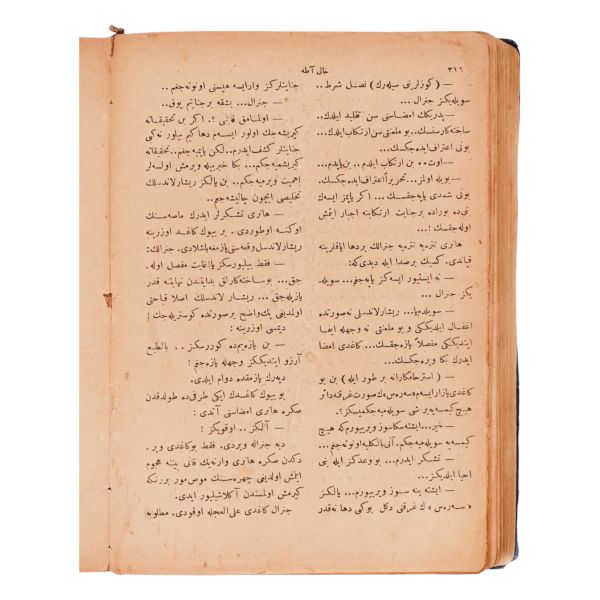 ٣١٦
خالی آطه
— ( کوزلرنی سیله رك ) نصل شرط ..
سویله یکز جنرال ...
— پدریکك امضاسنی سن تقلید ایلدك ..
ساخته کارسنك .. بو ملعنتی سن ارتکاب ایلدك ..
بونی اعتراف ایده جکسك.
— اوت .. بن ارتکاب ایلدم .. بن یاپدم ...
— بویله اولمز... تحریراً اعتراف ایده جکسك.
بونی شمدی یاپه جقسك... اکر یاپمز ایسه ك
نی ده بوراده بر جنایت ارتکابنه اجبار ایتمش
اوله جقسك !...
هانری تتره یه تتره یه جنرالك بردها ایاقلرینه
قپاندی. کسیك بر صدا ایله دیدی که:
— نه ایستیور ایسه کز یاپه جغم... سویله
یکز جنرال ...
— سویله دم یا... ریشارلاندسلی نه صورتده
اغفال ایلدیککی و بو ملعنتی نه وجهله ایفا
ایتدیککی مفصلاً یازه جقسك... کاغدی امضا
ایدرك بکا ویره جکسك.
— ( استرحامکارانه بر طور ایله ) بن بو
کاغدی یازار ایسه م «سه ره س» ك صورت غرقنه دائر
هیچ کیمسه یه بر شی سویله میه جکمیسکز؟.
— خیر... ایشته سکا سوز ویریورم که هیچ
کیمسه یه سویله میه جکم. آنی بالکلیه اونوته جغم...
— تشکر ایدرم... بو وعدکز ایله بنی
احیا ایلدیکز.
— ایشته ینه سوز ویریورم... یالکز
«سه ره س» ك غرقنی دکل بوکی دها نه قدر
جنایتلرکز وارایسه هپسنی اونوته جغم ..
— جنرال... بشقه بر جنایتم یوق..
— اولماماق قابلی ؟. اکر بن تحقیقاته
کیریشه جك اولور ایسه م دها کیم بیلور نه کی
جنایتلر کشف ایدرم.. لکن یاپمیه جغم.. تحقیقاته
کیریشمیه جکم... بکا خبر بیله ویرمش اولسه لر
اهمیت ویرمیه جکم... بن یالکز ریشارلاندسلك
تخلیصی ایچون چالیشه جغم..
— هانری تشکرلر ایدرك ماصه سنك
اوکنه اوطوردی. بر بیوك کاغد اوزرینه
ریشارلاندسل وقعه سنی یازمغه باشلادی. جنرالك:
— فقط بیلیورسکز یا! غایت مفصل اوله.
جق... بو ساخته کارلق بدایتدن نهایتنه قدر
یازیله جق... ریشار لاندسلك اصلا قباحتی
اولمدیغی پك واضح بر صورتده کوستریله جك !
دیمسی اوزرینه :
— بن یازه یم ده کوررسکز .. بالطبع
آرزو ایتدیککز وجهله یازه جغم !
دیه رك یازمقده دوام ایلدی.
بو بیوك کاغدك ایکی طرفی ده طولدقدن
صکره هانری امضاسنی آتدی :
— آلکز .. اوقویکز !
دیه جنراله ویردی. فقط بو کاغدی ویر.
دکدن صکره هانری وارنه یك قانی بیننه هجوم
ایتمش اولدیغی چهره سنك موس مور بر رنکه
کیرمش اولسندن آکلاشیلیور ایدی.
جنرال کاغدی علی العجله اوقودی. مطلوبه